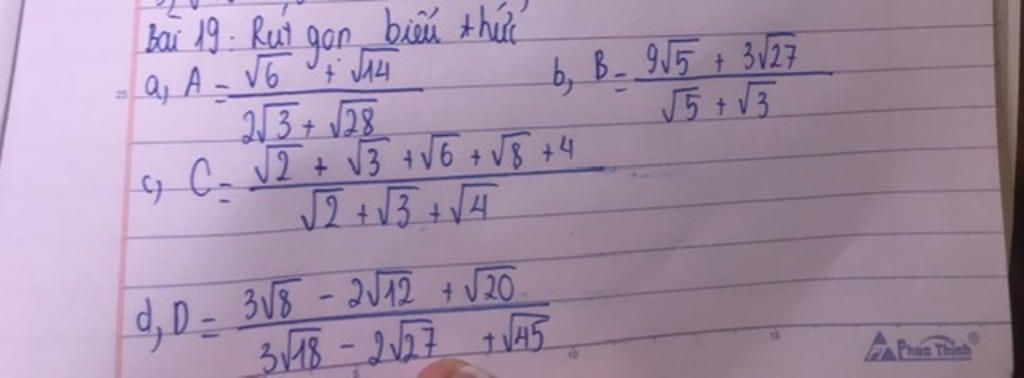 Bài 19: Rút gọn biểu thức
a, A = (√6 + √14)/(2√3 + √28) b, B = (9√5 + 3√27)/(√5 + √3)
c, C = (√2 + √3 + √6 + √8 + 4)/(√2 + √3 + √4)
d, D = (3√8 - 2√12 + √20)/(3√18 - 2√27 + √45)
25
5 10 15
Phuc Thinh®